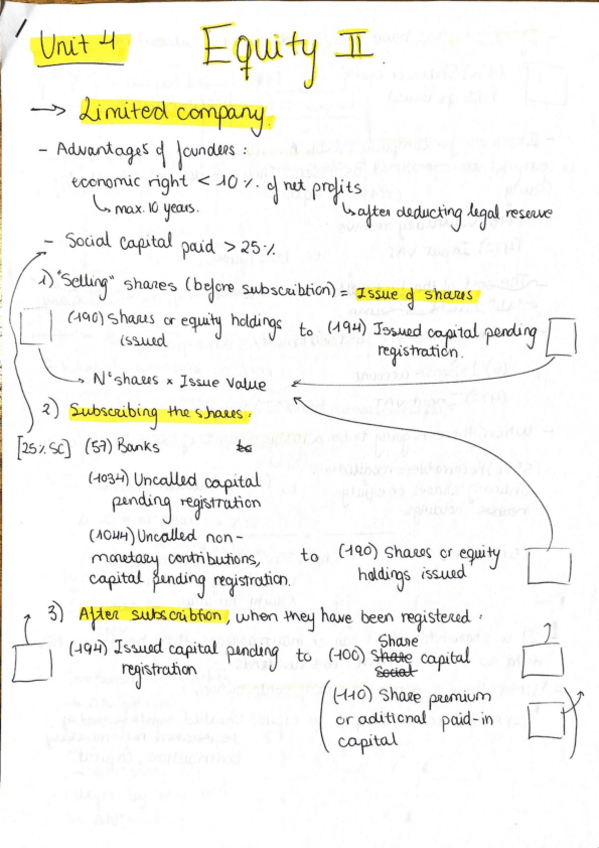 Unit 4 Equity II.
→ Limited company.
- Advantages of founders:
economic right < 10% of net profits
↳ max. 10 years. ↳ after deducting legal reserve
- Social capital paid > 25%
1) "Selling" shares (before subscribtion) = Issue of shares
(190) Shares or equity holdings issued to (194) Issued capital pending registration.
→ Nº shares × Issue Value
2) Subscribing the shares.
[25% SC] (57) Banks to
(1034) Uncalled capital
pending registration
(1044) Uncalled non-
monetary contributions, to (190) Shares or equity
capital pending registration. holdings issued
3) After subscribtion, when they have been registered.
Share
(194) Issued capital pending to (100) Share capital
registration Social
(110) Share premium
or aditional paid-in
capital